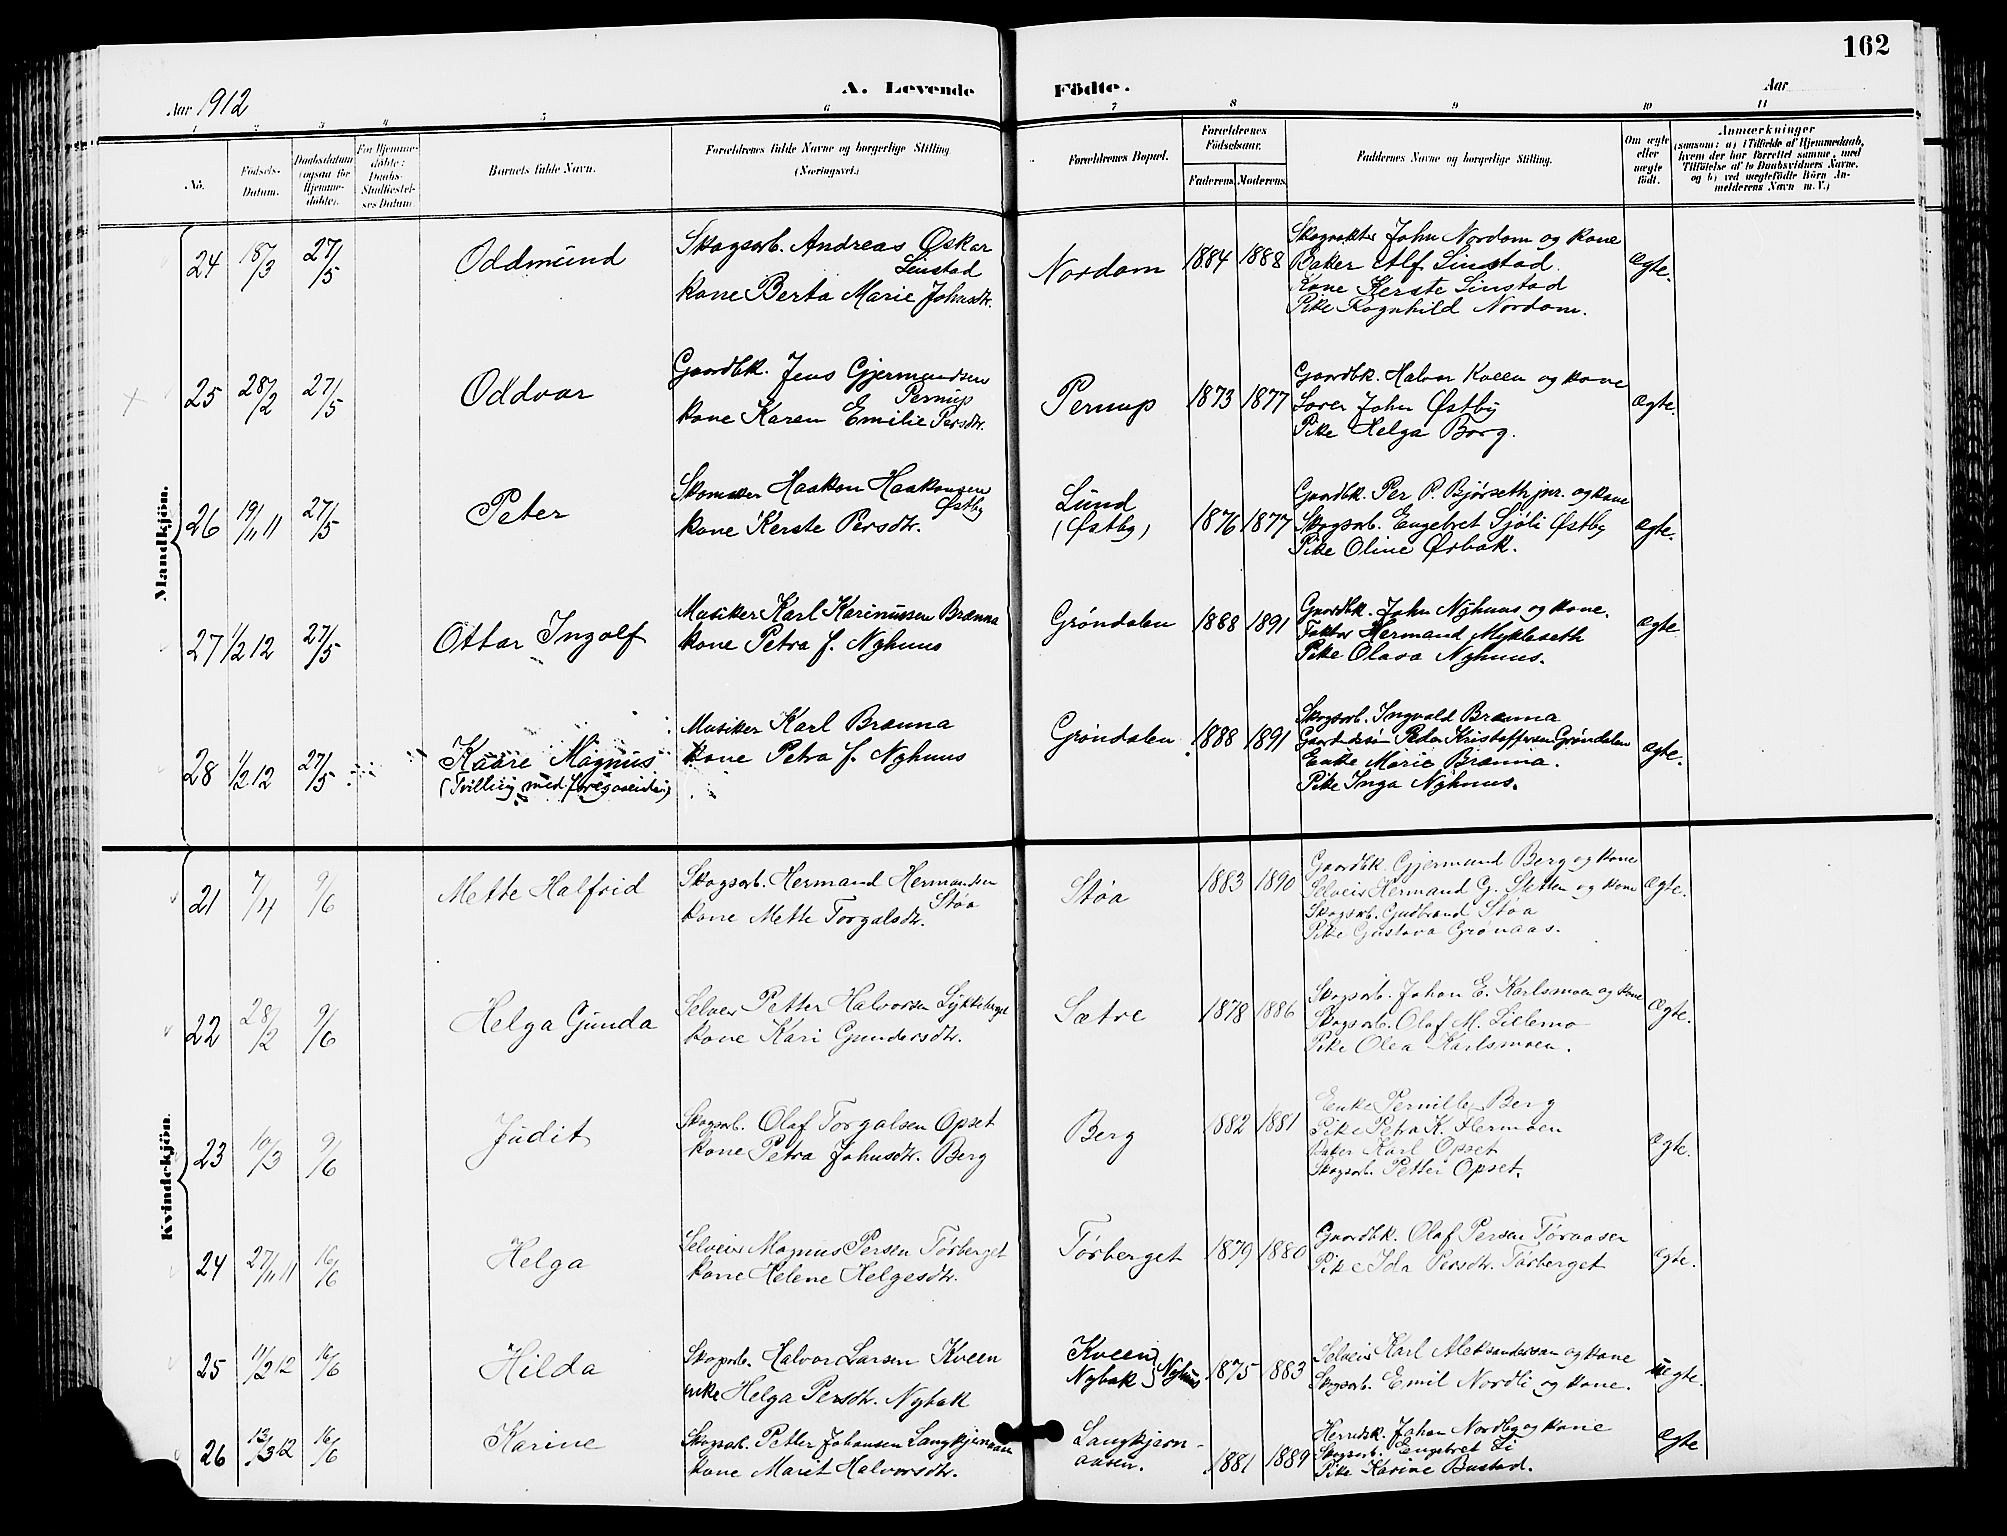 162
A. Levende Födte.
Aar 1912
Aar
1 2 3 4 5 6 7 8 9 10 11
No.
Födsels-
Datum.
Daabsdatum
(ogsaa for
Hjemme-
döbte).
For Hjemme-
döbte:
Daabs-
Stadfæstel-
ses Datum
Barnets fulde Navn.
Forældrenes fulde Navne og borgerlige Stilling
(Næringsvei.)
Forældrenes Bopæl.
Forældrenes
Födselsaar.
Faderens. Moderens.
Faddernes Navne og borgerlige Stilling.
Om ægte
eller
uægte
födt.
Anmærkninger
(saasom: a) i Tilfælde af Hjemmedaab,
hvem der har forrettet samme, med
Tilföielse af to Daabsvidners Navne,
og b) ved uægtefödte Börn An-
melderens Navn m. V.)
Mandkjön.
24 18/3 27/5 Oddmund
Skogsarb. Andreas Oskar
Linstad
kone Berta Marie Johnsdtr.
Nordom 1884 1888
Skogvokter John Nordom og kone
Baker Alf Linstad.
Kone Kerste Linstad
Pike Ragnhild Nordom.
ægte.
25 28/2 27/5 Oddvar
Gaardbk. Jens Gjermundsen
Pernup
kone Karen Emilie Persdtr.
Pernup 1873 1877
Gaardbk. Halvor Kveen og kone
Lærer John Østby
Pike Helga Borg.
ægte.
26 19/11 11 27/5 Peter
Skomaker Haakon Haakonsen
Østby
kone Kerste Persdtr.
Lund
(Østby) 1876 1877
Gaardbk. Per P. Bjørseth jnr. og kone
Skogsarb. Engebret Sjøli Østby
Pike Oline Ørbak.
ægte.
27 1/2 12 27/5 Ottar Ingolf
Musiker Karl Karinussen Brænna
kone Petra f. Nyhuus
Grøndalen 1888 1891
Gaardbk. John Nyhuus og kone.
Faktor Hermand Mykleseth
Pike Olava Nyhuus.
ægte
28 1/2 12 27/5 Kaare Magnus
(Tvilling med foregaaende)
Musiker Karl Brænna
kone Petra f. Nyhuus
Grøndalen 1888 1891
Skogsarb. Ingvald Brænna
Peder Kristoffersen Grøndalen
Enke Marie Brænna.
Pike Inga Nyhuus.
ægte.
Kvindekjön.
21 7/4 9/6 Mette Halfrid
Skogsarb. Hermand Hermansen
Støa
kone Mette Torgalsdtr.
Støa 1883 1890
Gaardbk. Gjermund Berg og kone
Selveier Hermand G. Sletten og kone
Skogsarb. Gudbrand Støa
Pike Gustava Grønaas.
ægte.
22 28/2 9/6 Helga Gunda
Selveier Petter Halvorsen Lykkeberget
kone Kari Gundersdtr.
Sætre 1878 1886
Skogsarb. Johan E. Karlsmoen og kone
Skogsarb. Olaf M. Lillemo
Pike Olea Karlsmoen.
Ægte.
23 10/3 9/6 Judit
Skogsarb. Olaf Torgalsen Opset
kone Petra Johnsdtr. Berg
Berg 1882 1881
Enke Pernille Berg
Pike Petra K. Hermoen
Baker Karl Opset
Skogsarb. Petter Opset.
ægte.
24 27/11 11 16/6 Helga
Selveier Magnus Persen Tørberget
kone Helene Helgesdtr.
Tørberget 1879 1880
Gaardbk. Olaf Persen Tøraasen
Pike Ida Persdtr. Tørberget
ægte.
25 11/2 12 16/6 Hilda
Skogsarb. Halvor Larsen Kveen
enke Helga Persdtr. Nybak
Kveen
Nybak } Nyhuus 1875 1883
Selveier Karl Aleksandersen og kone
Skogsarb. Emil Nordli og kone.
uægte.
26 13/3 12 16/6 Karine
Skogsarb. Petter Johansen Langkjernaasen
kone Marit Halvorsdtr.
Langkjern-
aasen. 1881 1889
Johan Nordby og kone
Skogsarb. Engebret Li
Pike Karine Bustad.
ægte